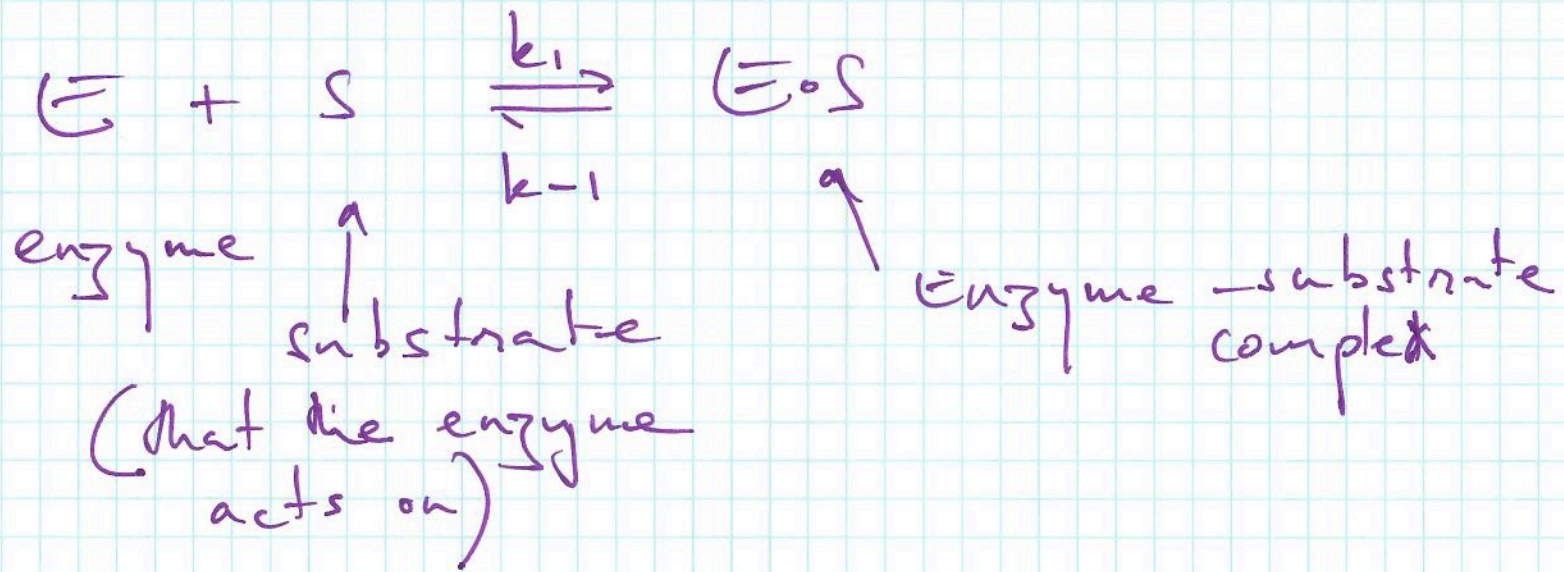 k1
E + S ⇌ E•S
k-1
enzyme
substrate
(that the enzyme
acts on)
Enzyme -substrate
complex